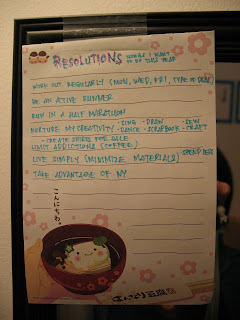 RESOLUTIONS THINGS I WANT TO DO THIS YEAR
WORK OUT REGULARLY (MON, WED, FRI, TYPE OF DEAL)
BE AN ACTIVE RUNNER
RUN IN A HALF MARATHON
NURTURE MY CREATIVITY - SING - DRAW - SEW
- DANCE - SCRAPBOOK - CRAFT
- CREATE SHIRTS FOR SALE
LIMIT ADDICTIONS (COFFEE)
LIVE SIMPLY (MINIMIZE MATERIALS) SPEND LESS
TAKE ADVANTAGE OF NY
こんにちわ。